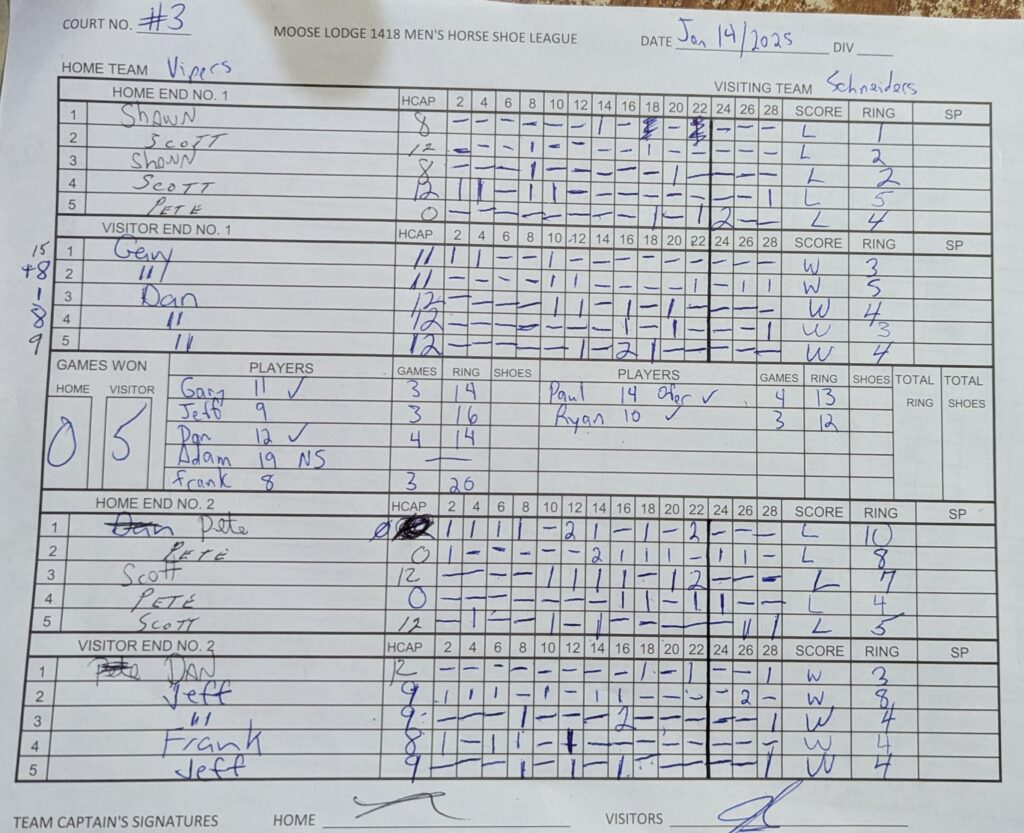 COURT NO. #3 MOOSE LODGE 1418 MEN'S HORSE SHOE LEAGUE DATE Jan 14/2025 DIV
HOME TEAM Vipers VISITING TEAM Schneiders
HOME END NO. 1 HCAP 2 4 6 8 10 12 14 16 18 20 22 24 26 28 SCORE RING SP
1 Shawn 8 – – – – – – 1 – – – – – L 1
2 Scott 12 – – – 1 – – – – 1 – – – – – L 2
3 Shawn 8 – – – 1 – – – – – 1 – – – – L 2
4 Scott 12 1 1 – 1 1 – – – – – – – – 1 L 5
5 Pete 0 – – – – – – – – 1 – 1 2 – – L 4
VISITOR END NO. 1 HCAP 2 4 6 8 10 12 14 16 18 20 22 24 26 28 SCORE RING SP
15 1 Gary 11 1 1 – – 1 – – – – – – – – – W 3
+8 2 " 11 – – – – 1 1 – – – – 1 – 1 1 W 5
1 3 Dan 12 – – – – 1 1 – 1 – 1 – – – – W 4
8 4 " 12 – – – – – – – 1 – 1 – – – 1 W 3
9 5 " 12 – – – – – 1 – 2 1 – – – – – W 4
GAMES WON PLAYERS GAMES RING SHOES PLAYERS GAMES RING SHOES TOTAL RING TOTAL SHOES
HOME VISITOR
0 5
Gary 11 ✓ 3 14 Paul 14 ✓ 4 13
Jeff 9 3 16 Ryan 10 ✓ 3 12
Dan 12 ✓ 4 14
Adam 19 NS —
Frank 8 3 20
HOME END NO. 2 HCAP 2 4 6 8 10 12 14 16 18 20 22 24 26 28 SCORE RING SP
1 Dan Pete 0 1 1 1 1 – 2 1 – 1 – 2 – – – L 10
2 Pete 0 1 – – – – – 2 1 1 1 – 1 1 – L 8
3 Scott 12 – – – – 1 1 1 1 – 1 2 – – – L 7
4 Pete 0 – – – – – – – 1 1 – 1 1 – – L 4
5 Scott 12 – 1 – – 1 – 1 – – – – – 1 1 L 5
VISITOR END NO. 2 HCAP 2 4 6 8 10 12 14 16 18 20 22 24 26 28 SCORE RING SP
1 Pete Dan 12 – – – – – – – – 1 – 1 – – 1 W 3
2 Jeff 9 1 1 1 – 1 – 1 1 – – – – 2 – W 8
3 " 9 – – – 1 – – – 2 – – – – – 1 W 4
4 Frank 8 1 – 1 1 – 1 – – – – – – – – W 4
5 Jeff 9 – – – 1 – 1 – 1 – – – – – 1 W 4
TEAM CAPTAIN'S SIGNATURES HOME VISITORS